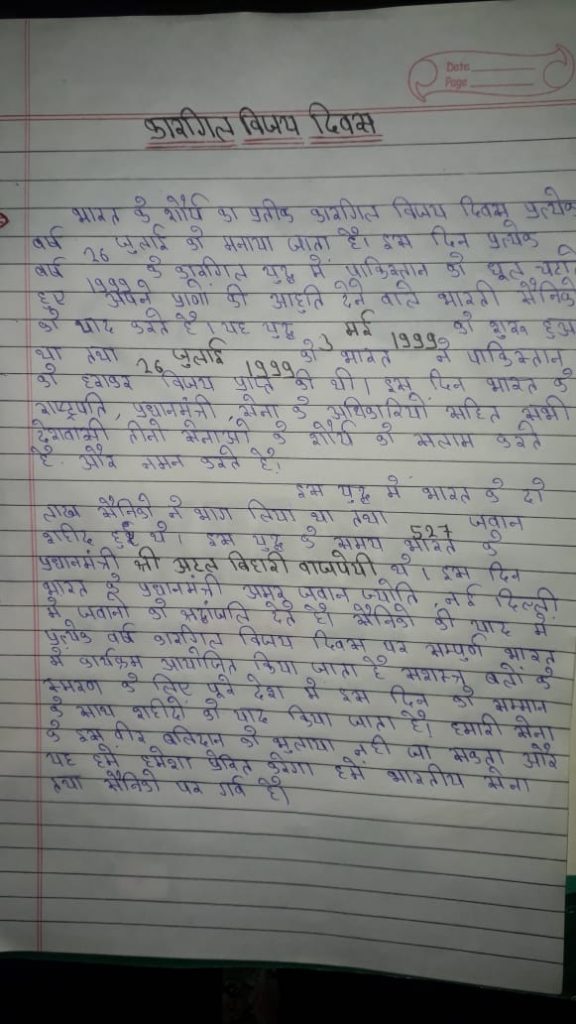 Date
Page
कारगिल विजय दिवस
भारत के शौर्य का प्रतीक कारगिल विजय दिवस प्रत्येक
वर्ष 26 जुलाई को मनाया जाता है। इस दिन प्रत्येक
वर्ष 1999 के कारगिल युद्ध में पाकिस्तान को धूल चटाते
हुए अपने प्राणों की आहुति देने वाले भारती सैनिको
को याद करते है। यह युद्ध 3 मई 1999 को शुरू हुआ
था तथा 26 जुलाई 1999 को भारत ने पाकिस्तान
को हराकर विजय प्राप्त की थी। इस दिन भारत के
राष्ट्रपति, प्रधानमंत्री, सेना के अधिकारियों सहित सभी
देशवासी तीनो सेनाओ के शौर्य को सलाम करते
है. और नमन करते है।
इस युद्ध में भारत के दो
लाख सैनिको ने भाग लिया था तथा 527 जवान
शहीद हुए थे। इस युद्ध के समय भारत के
प्रधानमंत्री श्री अटल बिहारी वाजपेयी थे। इस दिन
भारत के प्रधानमंत्री अमर जवान ज्योति नई दिल्ली
में जवानो को श्रद्धांजलि देते है। सैनिको की याद में
प्रत्येक वर्ष कारगिल विजय दिवस पर सम्पुर्ण भारत
में कार्यकम आयोजित किया जाता है सशस्त्र बलों के
स्मरण के लिए पूरे देश में इस दिन को सम्मान
के साथ शहीदों को याद किया जाता है। हमारी सेना
के इस वीर बलिदान को भुलाया नही जा सकता और
यह हमें हमेशा प्रेरित करेगा हमें भारतीय सेना
तथा सैनिको पर गर्व है।